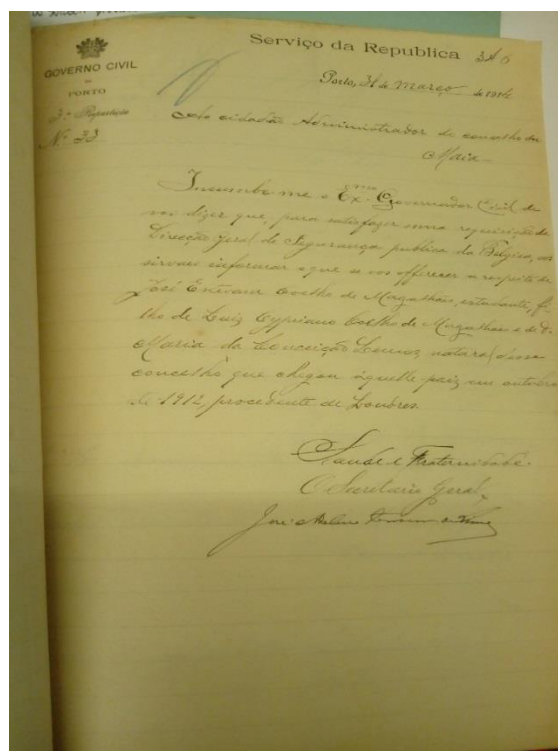 Serviço da Republica 346
GOVERNO CIVIL
DO
PORTO
3ª Repartição
Nº 33
Porto, 31 de Março de 1914
Ao cidadão Administrador do concelho da
Maia
Incumbe-me o Exmo Governador Civil de
vos dizer que, para satisfazer uma requisição da
Direcção Geral de Segurança publica da Belgica, vos
sirvaes informar o que se vos offerecer a respeito de
José Estevam Coelho de Magalhães, estudante, fi-
lho de Luiz Cypriano Coelho de Magalhães e de D.
Maria da Conceição Lemos, natural desse
concelho que chegou áquelle paiz em outubro
de 1912, procedente de Londres.
Saude e Fraternidade.
O Secretario Geral,
José